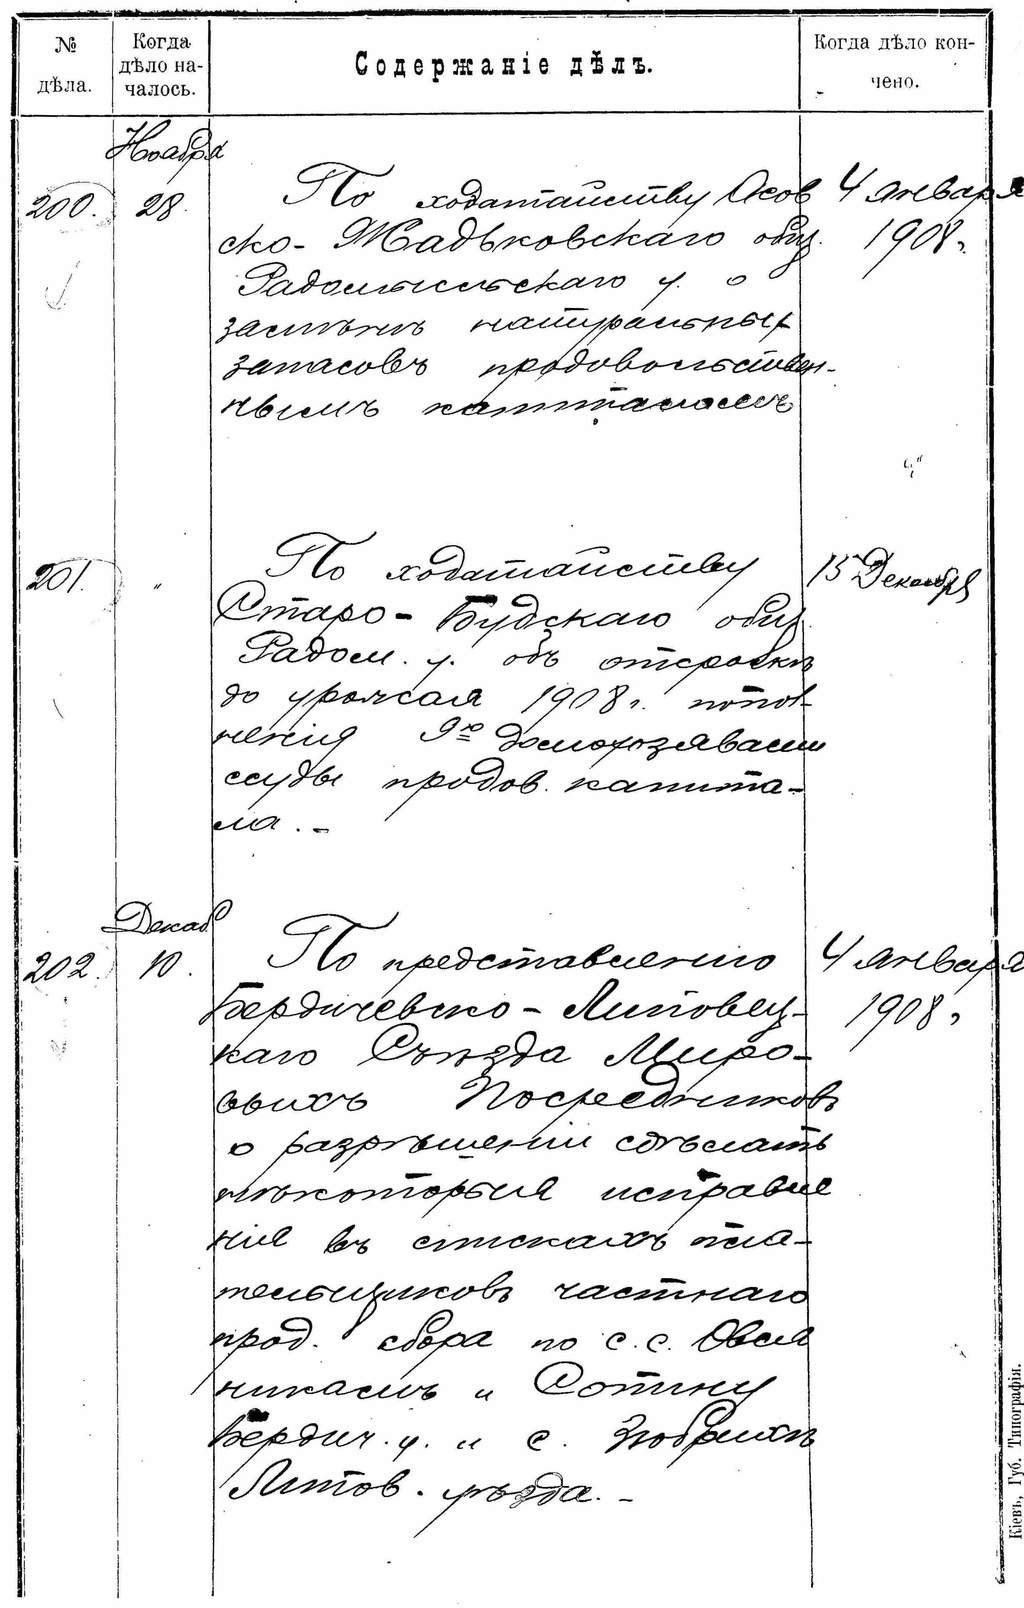 № дѣла.
Когда дѣло на-
чалось.
Содержаніе дѣлъ.
Когда дѣло кон-
чено.
Ноября
200. 28. По ходатайству Осов 4 января
ско-Жадьковскаго общ. 1908 г.
Радомысльскаго у. о
замѣнѣ натуральных
запасовъ продовольствен-
нымъ капиталомъ
201. " По ходатайству 15 Декабря
Старо-Будскаго общ.
Радом. у. объ отсрочкѣ
до урожая 1908 г. попол
ненія 9ю домохозяевами
ссуды продов. капита-
ла. -
Декаб
202. 10. По представленію 4 января
Бердичевско-Липовец- 1908 г.
каго Съѣзда Миро-
выхъ Посредниковъ
о разрѣшеніи сдѣлать
нѣкоторыя исправле
нія въ спискахъ пла-
тельщиковъ частнаго
прод. сбора по с.с. Овся
никамъ и Сопину
Бердич. у. и с. Зюбрихѣ
Липов. уѣзда. -
Кіевъ, Губ. Типографія.